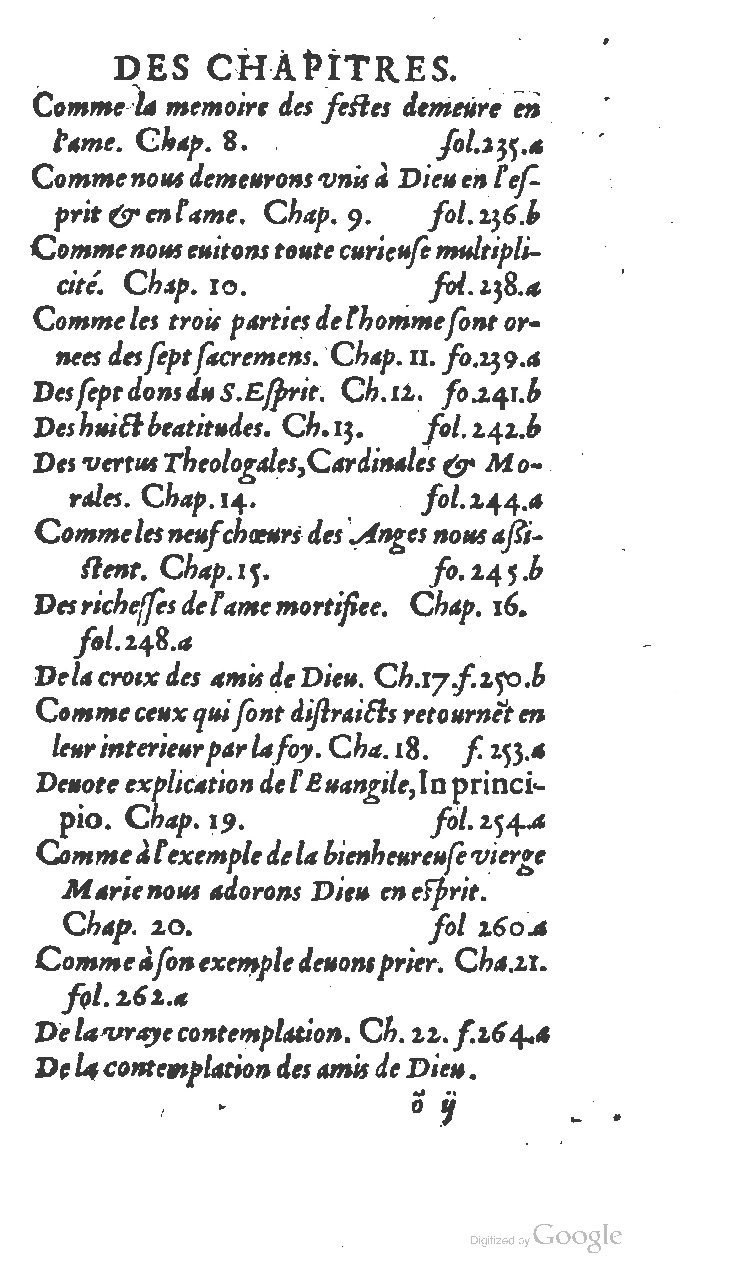 DES CHAPITRES.
Comme la memoire des festes demeure en
l'ame. Chap. 8. fol.235.a
Comme nous demeurons vnis à Dieu en l'eſ-
prit & en l'ame. Chap. 9. fol.236.b
Comme nous euitons toute curieuſe multipli-
cité. Chap. 10. fol.238.a
Comme les trois parties de l'homme ſont or-
nees des ſept ſacremens. Chap. 11. fo.239.a
Des ſept dons du S.Eſprit. Ch.12. fo.241.b
Des huict beatitudes. Ch.13. fol.242.b
Des vertus Theologales, Cardinales & Mo-
rales. Chap.14. fol.244.a
Comme les neuf chœurs des Anges nous aſſi-
ſtent. Chap.15. fo.245.b
Des richeſſes de l'ame mortifiee. Chap. 16.
fol.248.a
De la croix des amis de Dieu. Ch.17.f.250.b
Comme ceux qui ſont diſtraicts retournẽt en
leur interieur par la foy. Cha.18. f.253.a
Deuote explication de l'Euangile, In princi-
pio. Chap. 19. fol.254.a
Comme à l'exemple de la bienheureuſe vierge
Marie nous adorons Dieu en eſprit.
Chap. 20. fol 260.a
Comme à ſon exemple deuons prier. Cha.21.
fol.262.a
De la vraye contemplation. Ch. 22. f.264.a
De la contemplation des amis de Dieu.
õ ÿ
Digitized by Google